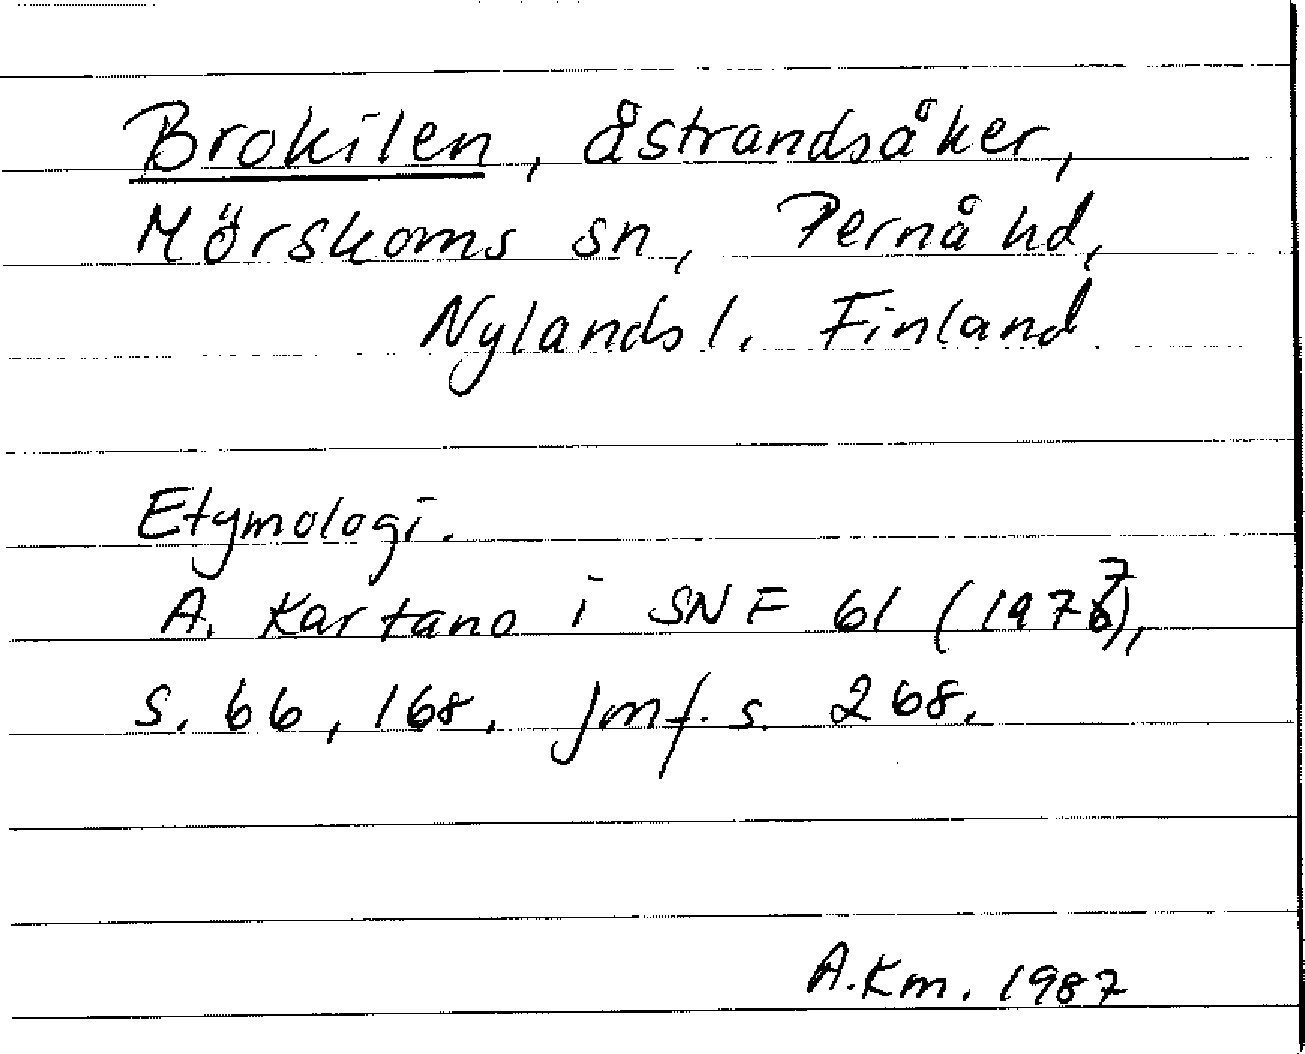 Brokilen, åstrandsåker,
Mörskoms sn, Pernå hd,
Nylands l. Finland
Etymologi.
A. Kartano i SNF 61 (1977),
s. 66, 168. Jmf. s. 268.
A.Km. 1987